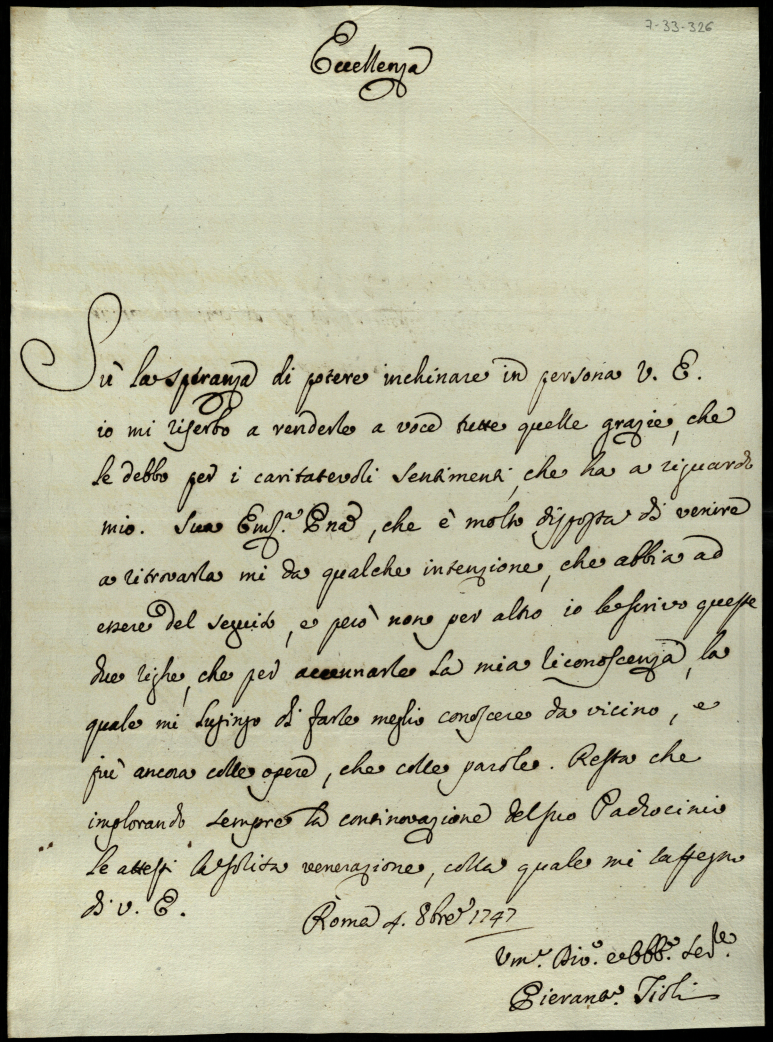 7-33-326
Eccellenza
Sù la speranza di potere inchinare in persona V. E.
io mi riserbo a renderle a voce tutte quelle grazie, che
le debbo per i caritatevoli sentimenti, che ha a riguardo
mio. Sua Em.ª Ena, che è molto disposta di venire
a ritrovarla mi da qualche intenzione, che abbia ad
essere del seguito, e però non per altro io le scrivo queste
due righe, che per accennarle la mia riconoscenza, la
quale mi lusingo di farle meglio conoscere da vicino, e
più ancora colle opere, che colle parole. Resta che
implorando sempre la continovazione del suo Padrocinio
le attesti la solita venerazione, colla quale mi rassegno
di V. E.
Roma 4. 8bre 1747
Um.º Div.º e obb.º Ser.le
Pieranto. Tioli